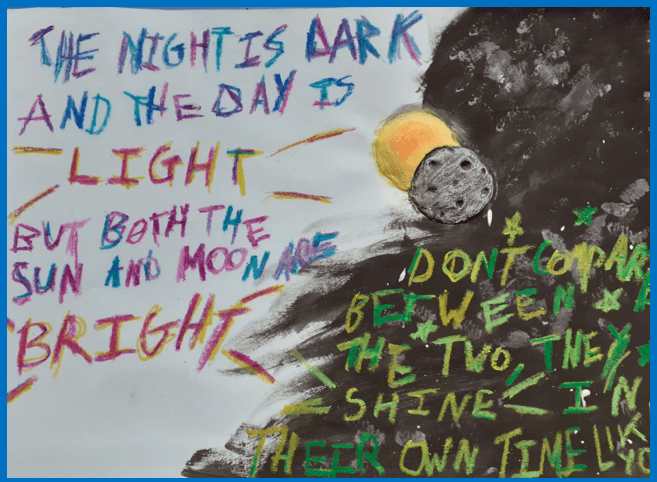 THE NIGHT IS DARK
AND THE DAY IS
LIGHT
BUT BOTH THE
SUN AND MOON ARE
BRIGHT
DONT COMPAR
BETWEEN
THE TWO, THEY
SHINE IN
THEIR OWN TIME LIK YO